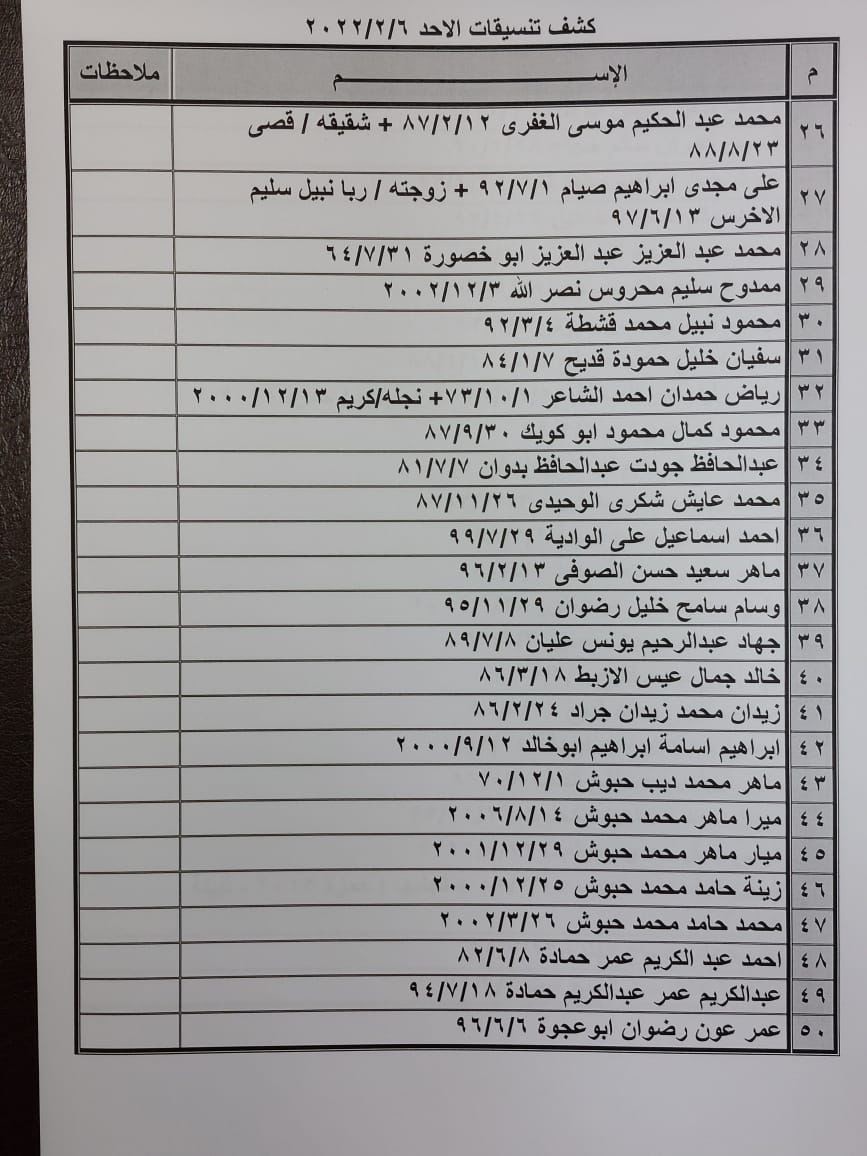 كشف تنسيقات الاحد ٢٠٢٢/٢/٦
م الإســـــــــــــــــــــم ملاحظات
٢٦ محمد عبد الحكيم موسى الغفرى ٨٧/٢/١٢ + شقيقه / قصى
٨٨/٨/٢٣
٢٧ على مجدى ابراهيم صيام ٩٢/٧/١ + زوجته / ربا نبيل سليم
الاخرس ٩٧/٦/١٣
٢٨ محمد عبد العزيز عبد العزيز ابو خصورة ٦٤/٧/٣١
٢٩ ممدوح سليم محروس نصر الله ٢٠٠٢/١٢/٣
٣٠ محمود نبيل محمد قشطة ٩٢/٣/٤
٣١ سفيان خليل حمودة قديح ٨٤/١/٧
٣٢ رياض حمدان احمد الشاعر ٧٣/١٠/١+ نجله/كريم ٢٠٠٠/١٢/١٣
٣٣ محمود كمال محمود ابو كويك ٨٧/٩/٣٠
٣٤ عبدالحافظ جودت عبدالحافظ بدوان ٨١/٧/٧
٣٥ محمد عايش شكرى الوحيدى ٨٧/١١/٢٦
٣٦ احمد اسماعيل على الوادية ٩٩/٧/٢٩
٣٧ ماهر سعيد حسن الصوفى ٩٦/٢/١٣
٣٨ وسام سامح خليل رضوان ٩٥/١١/٢٩
٣٩ جهاد عبدالرحيم يونس عليان ٨٩/٧/٨
٤٠ خالد جمال عيس الازبط ٨٦/٣/١٨
٤١ زيدان محمد زيدان جراد ٨٦/٢/٢٤
٤٢ ابراهيم اسامة ابراهيم ابوخالد ٢٠٠٠/٩/١٢
٤٣ ماهر محمد ديب حبوش ٧٠/١٢/١
٤٤ ميرا ماهر محمد حبوش ٢٠٠٦/٨/١٤
٤٥ ميار ماهر محمد حبوش ٢٠٠١/١٢/٢٩
٤٦ زينة حامد محمد حبوش ٢٠٠٠/١٢/٢٥
٤٧ محمد حامد محمد حبوش ٢٠٠٢/٣/٢٦
٤٨ احمد عبد الكريم عمر حمادة ٨٢/٦/٨
٤٩ عبدالكريم عمر عبدالكريم حمادة ٩٤/٧/١٨
٥٠ عمر عون رضوان ابوعجوة ٩٦/٦/٦